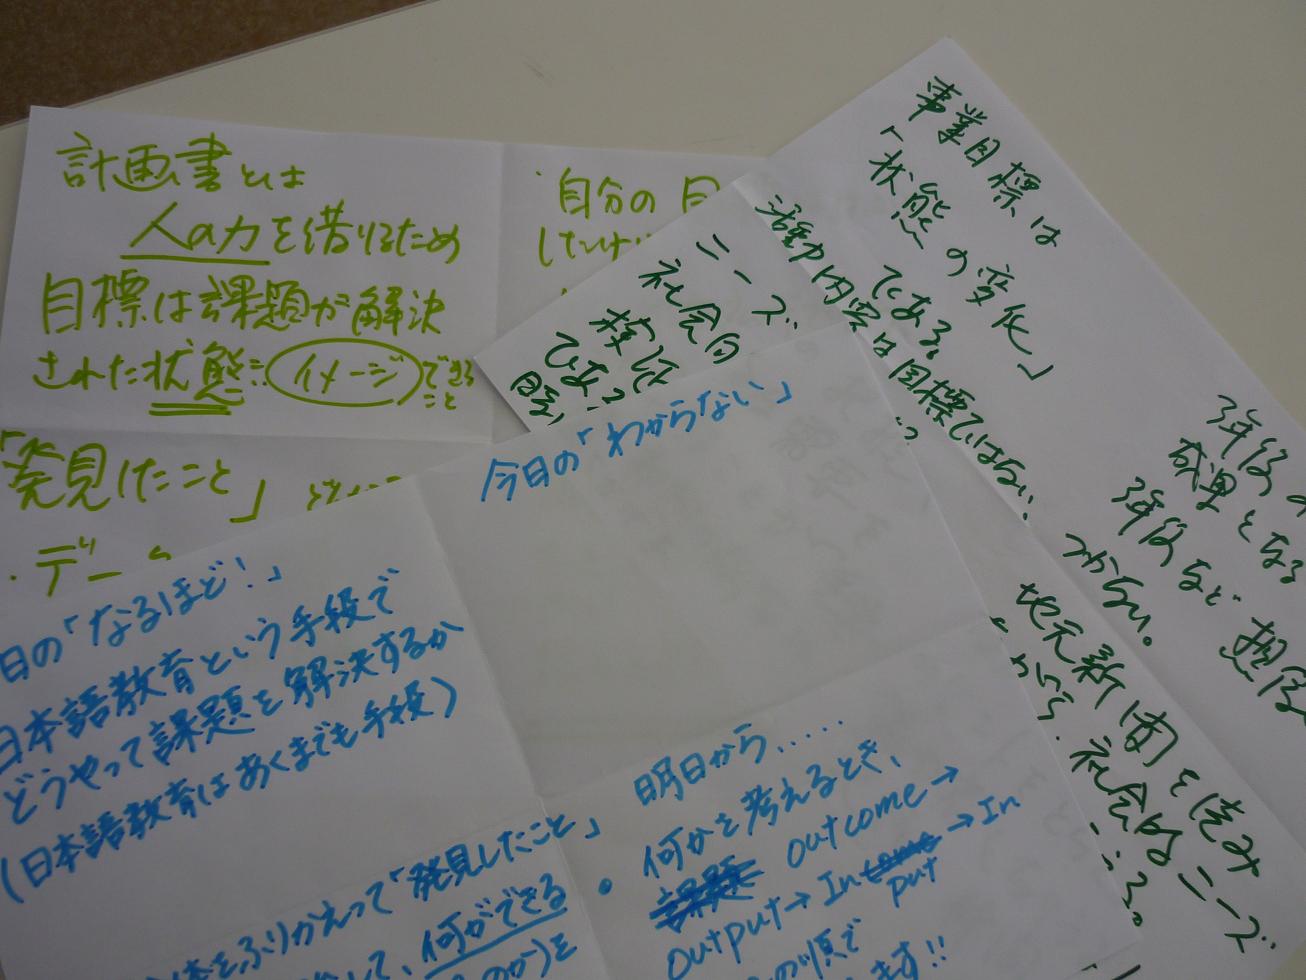 計画書とは
人の力を借りるため
目標は課題が解決
された状態にイメージできる
こと
「発見したこと」
・デー
・自分の
ニーズ
社会的
検証
である
事業目標は
「状態の変化」
である。
活動内容は目標ではない。
3年後の
成果となる
3年後など想像
つかない。
地元新聞を読み
社会的ニーズ
今日の「わからない」
日の「なるほど!」
日本語教育という手段で
どうやって課題を解決するか
(日本語教育はあくまでも手段)
をふりかえって「発見したこと」
して、何ができる
のか)を
明日から....
・何かを考えるとき、
課題 outcome→
output→Incomeput→In
の順で
ます!!